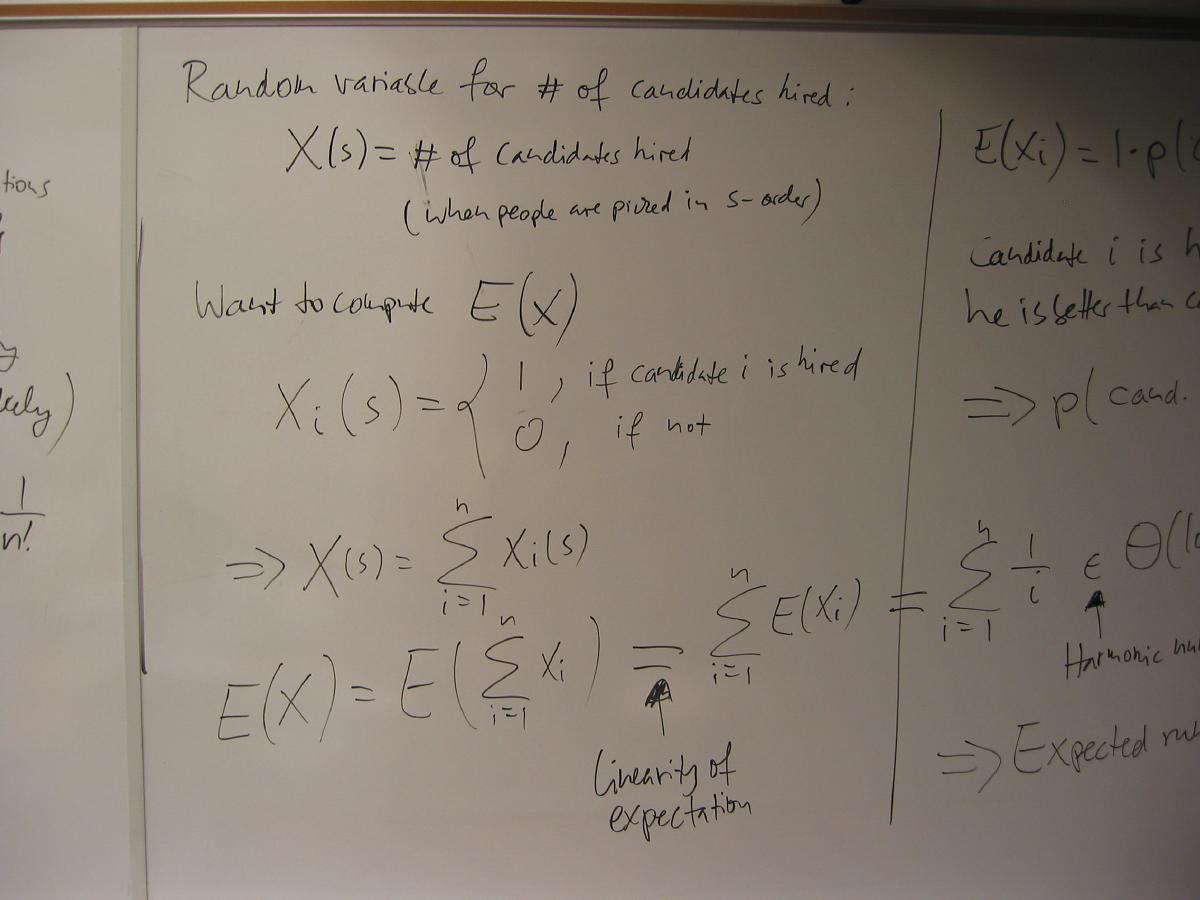 tions
1
n!
Random variable for # of candidates hired :
X(s) = # of candidates hired
(when people are picked in s-order)
Want to compute E(X)
Xi(s) = { 1, if candidate i is hired
0, if not
=> X(s) = n ∑ i=1 Xi(s)
E(X) = E( n ∑ i=1 Xi ) = n ∑ i=1 E(Xi) = n ∑ i=1 1/i ∈ Θ(
Linearity of
expectation
E(Xi) = 1·p(
Candidate i is h
he is better than c
=> p( cand.
Harmonic nu
=> Expected